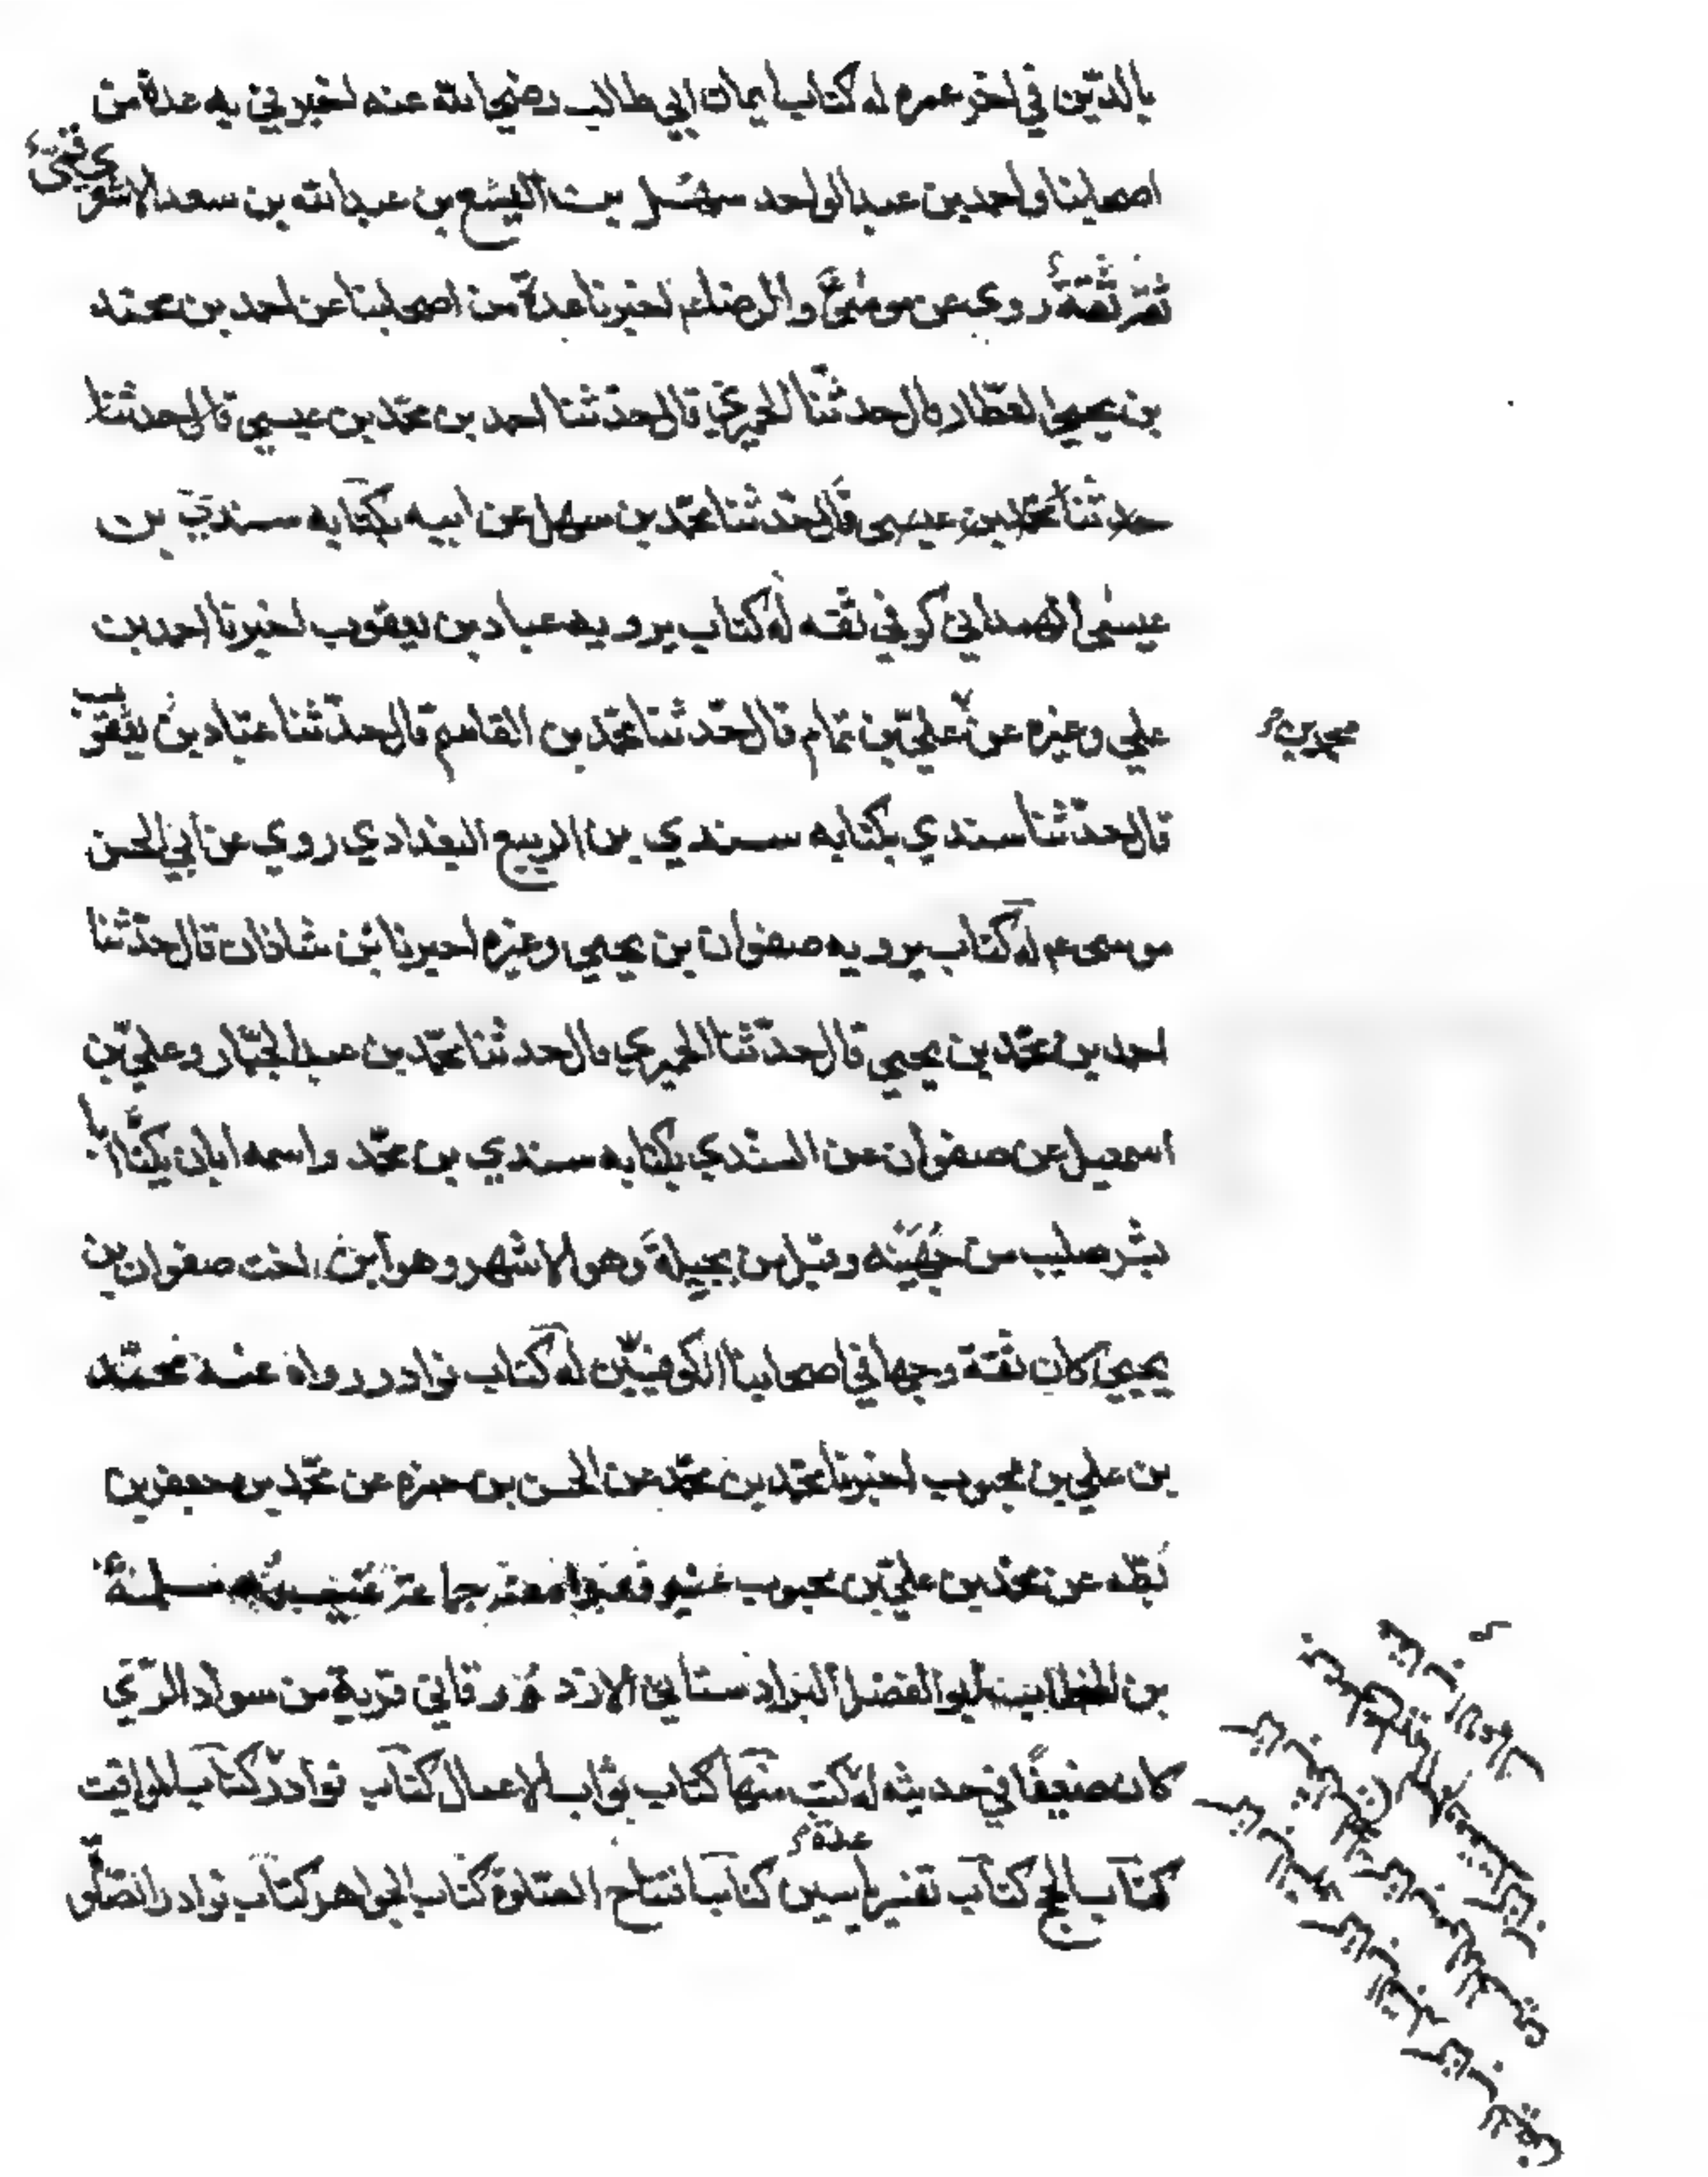 بالدين في اخر عمره له كتاب ايمان ابي طالب رضي الله عنه اخبرني به عدة من
اصحابنا واحمد بن عبد الواحد سهل بن اليسع بن عبد الله بن سعد الاشعري قمي
ثقة ثقة روي عن موسى والرضا ع اخبرنا عدة من اصحابنا عن احمد بن محمد
بن يحيى العطار قال حدثنا الحميري قال حدثنا احمد بن محمد بن عيسى قال حدثنا
حدثنا محمد بن عيسى قال حدثنا محمد بن سهل عن ابيه بكتابه سندي بن
عيسى الهمداني كوفي ثقه له كتاب يرويه عباد بن يعقوب اخبرنا احمد بن
علي وغيره عن علي بن تمام قال حدثنا محمد بن القاسم قال حدثنا عباد بن يعقوب
محمد بن
قال حدثنا سندي بكتابه سندي بن الربيع البغدادي روي عن ابي الحسن
موسى ع له كتاب يرويه صفوان بن يحيى وغيره اخبرنا ابن شاذان قال حدثنا
احمد بن محمد بن يحيى قال حدثنا الحميري قال حدثنا محمد بن عبد الجبار وعلي بن
اسمعيل عن صفوان عن السندي بكتابه سندي بن محمد واسمه ابان يكنا ابا
بشر صليب من جهينه وقيل من بجيلة وهو الاشهر وهو ابن اخت صفوان بن
يحيى كان ثقة وجها في اصحابنا الكوفيين له كتاب نوادر رواه عنه محمد
بن علي بن محبوب اخبرنا محمد بن محمد عن الحسن بن حمزه عن محمد بن جعفر بن
بطه عن محمد بن علي بن محبوب عنه سلمة
بن الخطاب ابو الفضل البراوستاني الازدورقاني قرية من سواد الري
كان ضعيفا في حديثه له كتب منها كتاب ثواب الاعمال كتاب نوادر كتاب المواقيت
عدة
كتاب الحج كتاب تفسير ياسين كتاب افتتاح الصلوة كتاب الجواهر كتاب نوادر الصلوة